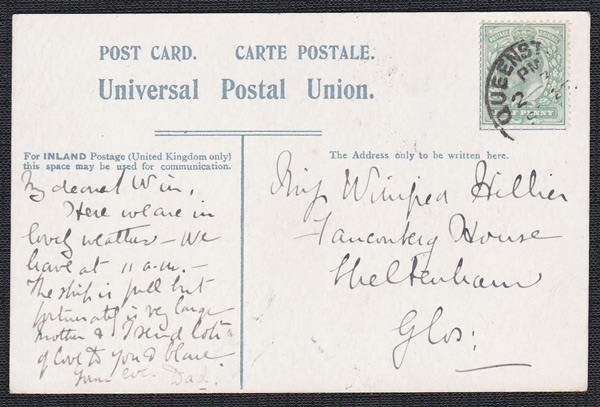 POST CARD. CARTE POSTALE.
Universal Postal Union.
For INLAND Postage (United Kingdom only)
this space may be used for communication.
My dearest Win,
Here we are in
lovely weather – We
leave at 11 a.m. –
The ship is full but
fortunately is very large
Mother & I send lots
of love to you &
Your ever Dad.
The Address only to be written here.
Miss Winifred Hillier
Fauconberg House
Cheltenham
Glos:
QUEENST
PM
2
PENNY